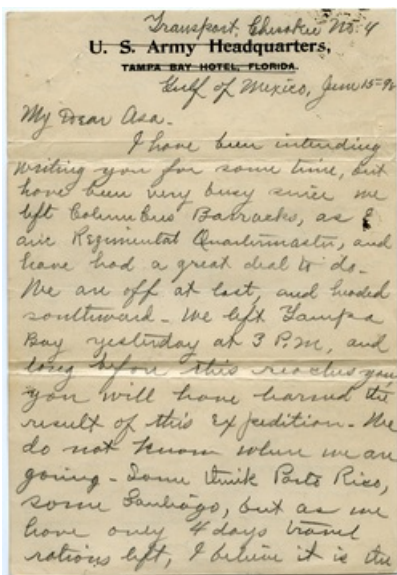 Transport, Cherokee No. 4
U. S. Army Headquarters,
TAMPA BAY HOTEL, FLORIDA.
Gulf of Mexico, June 15-98
My Dear Asa.
I have been intending
writing you for some time, but
have been very busy since we
left Columbus Barracks, as I
am Regimental Quartermaster, and
have had a great deal to do.
We are off at last, and headed
southward. We left Tampa
Bay yesterday at 3 P.M, and
long before this reaches you,
you will have learned the
result of this expedition. We
do not know where we are
going. Some think Porto Rico,
some Santiago, but as we
have only 4 days travel
rations left, I believe it is the